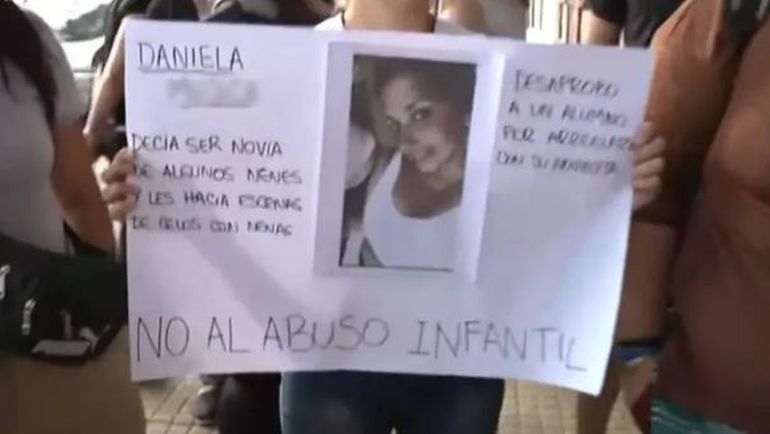 DANIELA
DECÍA SER NOVIA
DE ALGUNOS NENES
Y LES HACIA ESCENAS
DE CELOS CON NENAS
DESAPROBO
A UN ALUMNO
POR
CON SU
NO AL ABUSO INFANTIL